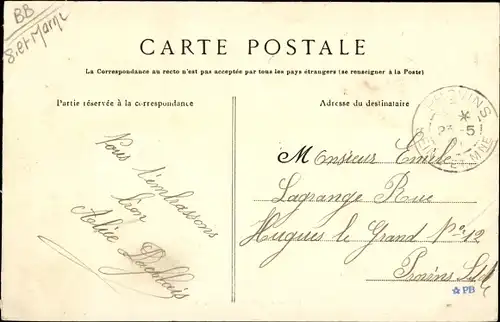 BB
S. et Marne
CARTE POSTALE
La Correspondance au recto n'est pas acceptée par tous les pays étrangers (se renseigner à la Poste)
Partie réservée à la correspondance
Adresse du destinataire
PROVINS
23-5
SEINE ET MNE
Vous t'embrassons
bien
Alice
Monsieur Emile
Lagrange Rue
Hugues le Grand No 12
Provins
PB